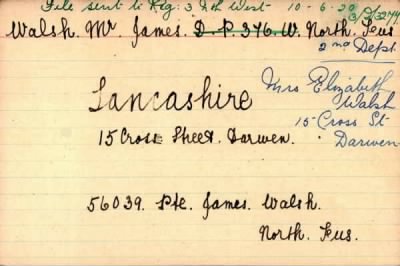 File sent to Reg: 3 Nth West 10-6-20
Walsh. Mr. James. D. P. 376 W. North. Fus
2nd Dept.
Mrs Elizabeth
Walsh
15 Cross St
Darwen
Lancashire
15 Cross Street. Darwen.
56039. Pte. James. Walsh.
North. Fus.